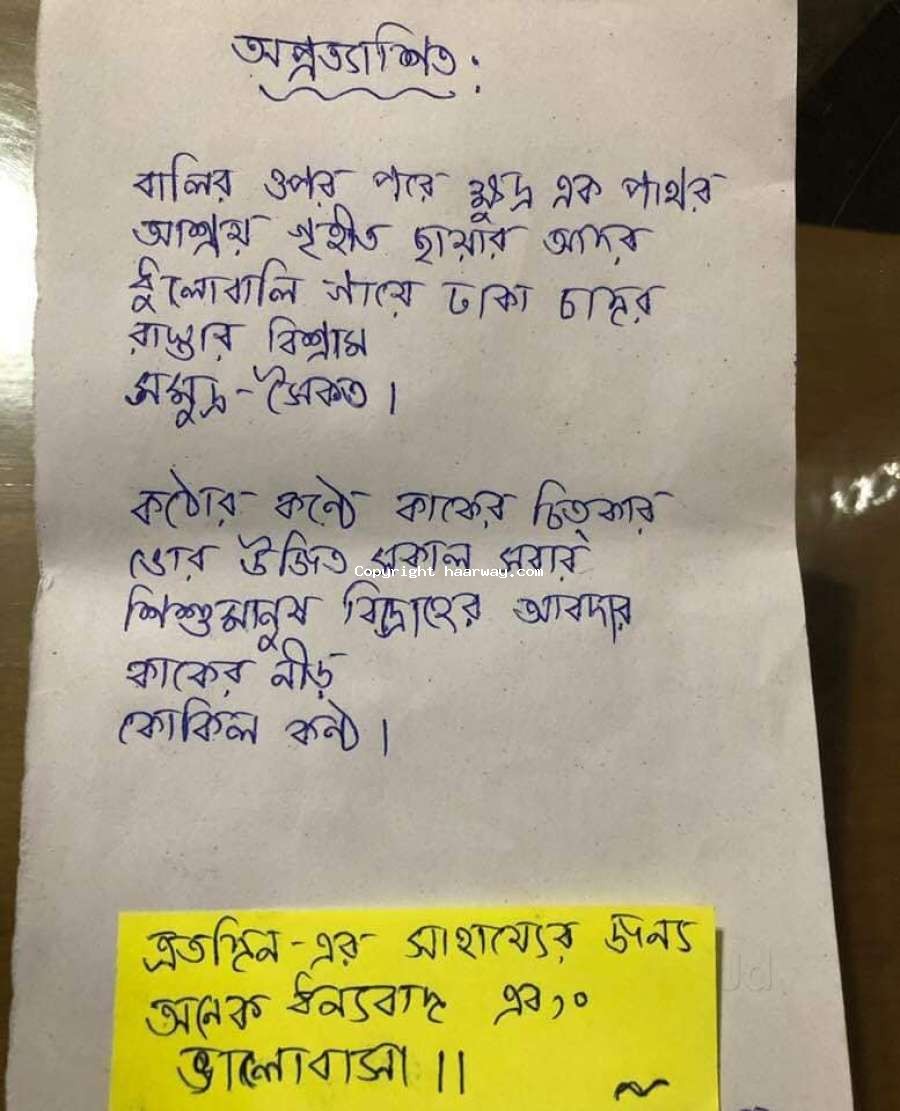 অপ্রত্যাশিত :
বালির ওপর পরে ক্ষুদ্র এক পাথর
আশ্রয় গৃহীত ছায়ার আদর
ধুলোবালি গায়ে ঢাকা চাদর
রাস্তার বিশ্রাম
সমুদ্র-সৈকত ।
কঠোর কন্ঠে কাকের চিত্কার
ভোর উজিত সকাল সবার
Copyright haarway.com
শিশুমানুষ বিদ্রোহের আবদার
কাকের নীড়
কোকিল কন্ঠ ।
এতদিন-এর সাহায্যের জন্য
অনেক ধন্যবাদ এবং
ভালোবাসা ।।